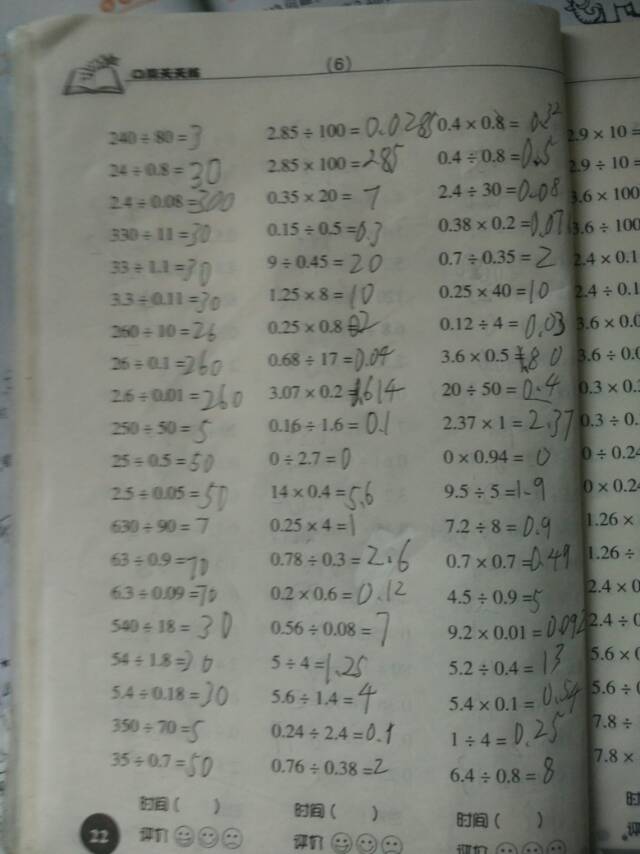 口算天天练
(6)
240÷80=3
24÷0.8=30
2.4÷0.08=300
330÷11=30
33÷1.1=30
3.3÷0.11=30
260÷10=26
26÷0.1=260
2.6÷0.01=260
250÷50=5
25÷0.5=50
2.5÷0.05=50
630÷90=7
63÷0.9=70
6.3÷0.09=70
540÷18=30
54÷1.8=30
5.4÷0.18=30
350÷70=5
35÷0.7=50
时间( )
评价
2.85÷100=0.0285
2.85×100=285
0.35×20=7
0.15÷0.5=0.3
9÷0.45=20
1.25×8=10
0.25×0.8=
0.68÷17=0.04
3.07×0.2=
0.16÷1.6=0.1
0÷2.7=0
14×0.4=5.6
0.25×4=1
0.78÷0.3=2.6
0.2×0.6=0.12
0.56÷0.08=7
5÷4=1.25
5.6÷1.4=4
0.24÷2.4=0.1
0.76÷0.38=2
时间( )
评价
0.4×0.8=0.32
0.4÷0.8=0.5
2.4÷30=0.08
0.38×0.2=0.07
0.7÷0.35=2
0.25×40=10
0.12÷4=0.03
3.6×0.5=
20÷50=0.4
2.37×1=2.37
0×0.94=0
9.5÷5=1.9
7.2÷8=0.9
0.7×0.7=0.49
4.5÷0.9=5
9.2×0.01=0.092
5.2÷0.4=13
5.4×0.1=0.54
1÷4=0.25
6.4÷0.8=8
时间( )
评价
2.9×10=
2.9÷10=
3.6×100
3.6÷100
2.4×0.1
2.4÷0.1
3.6×0.0
3.6÷0.0
0.3×0.
0.3÷0.
0÷0.24
0×0.24
1.26×
1.26÷
2.4×0
2.4÷0
5.6×0
5.6÷0
7.8÷
7.8×
22